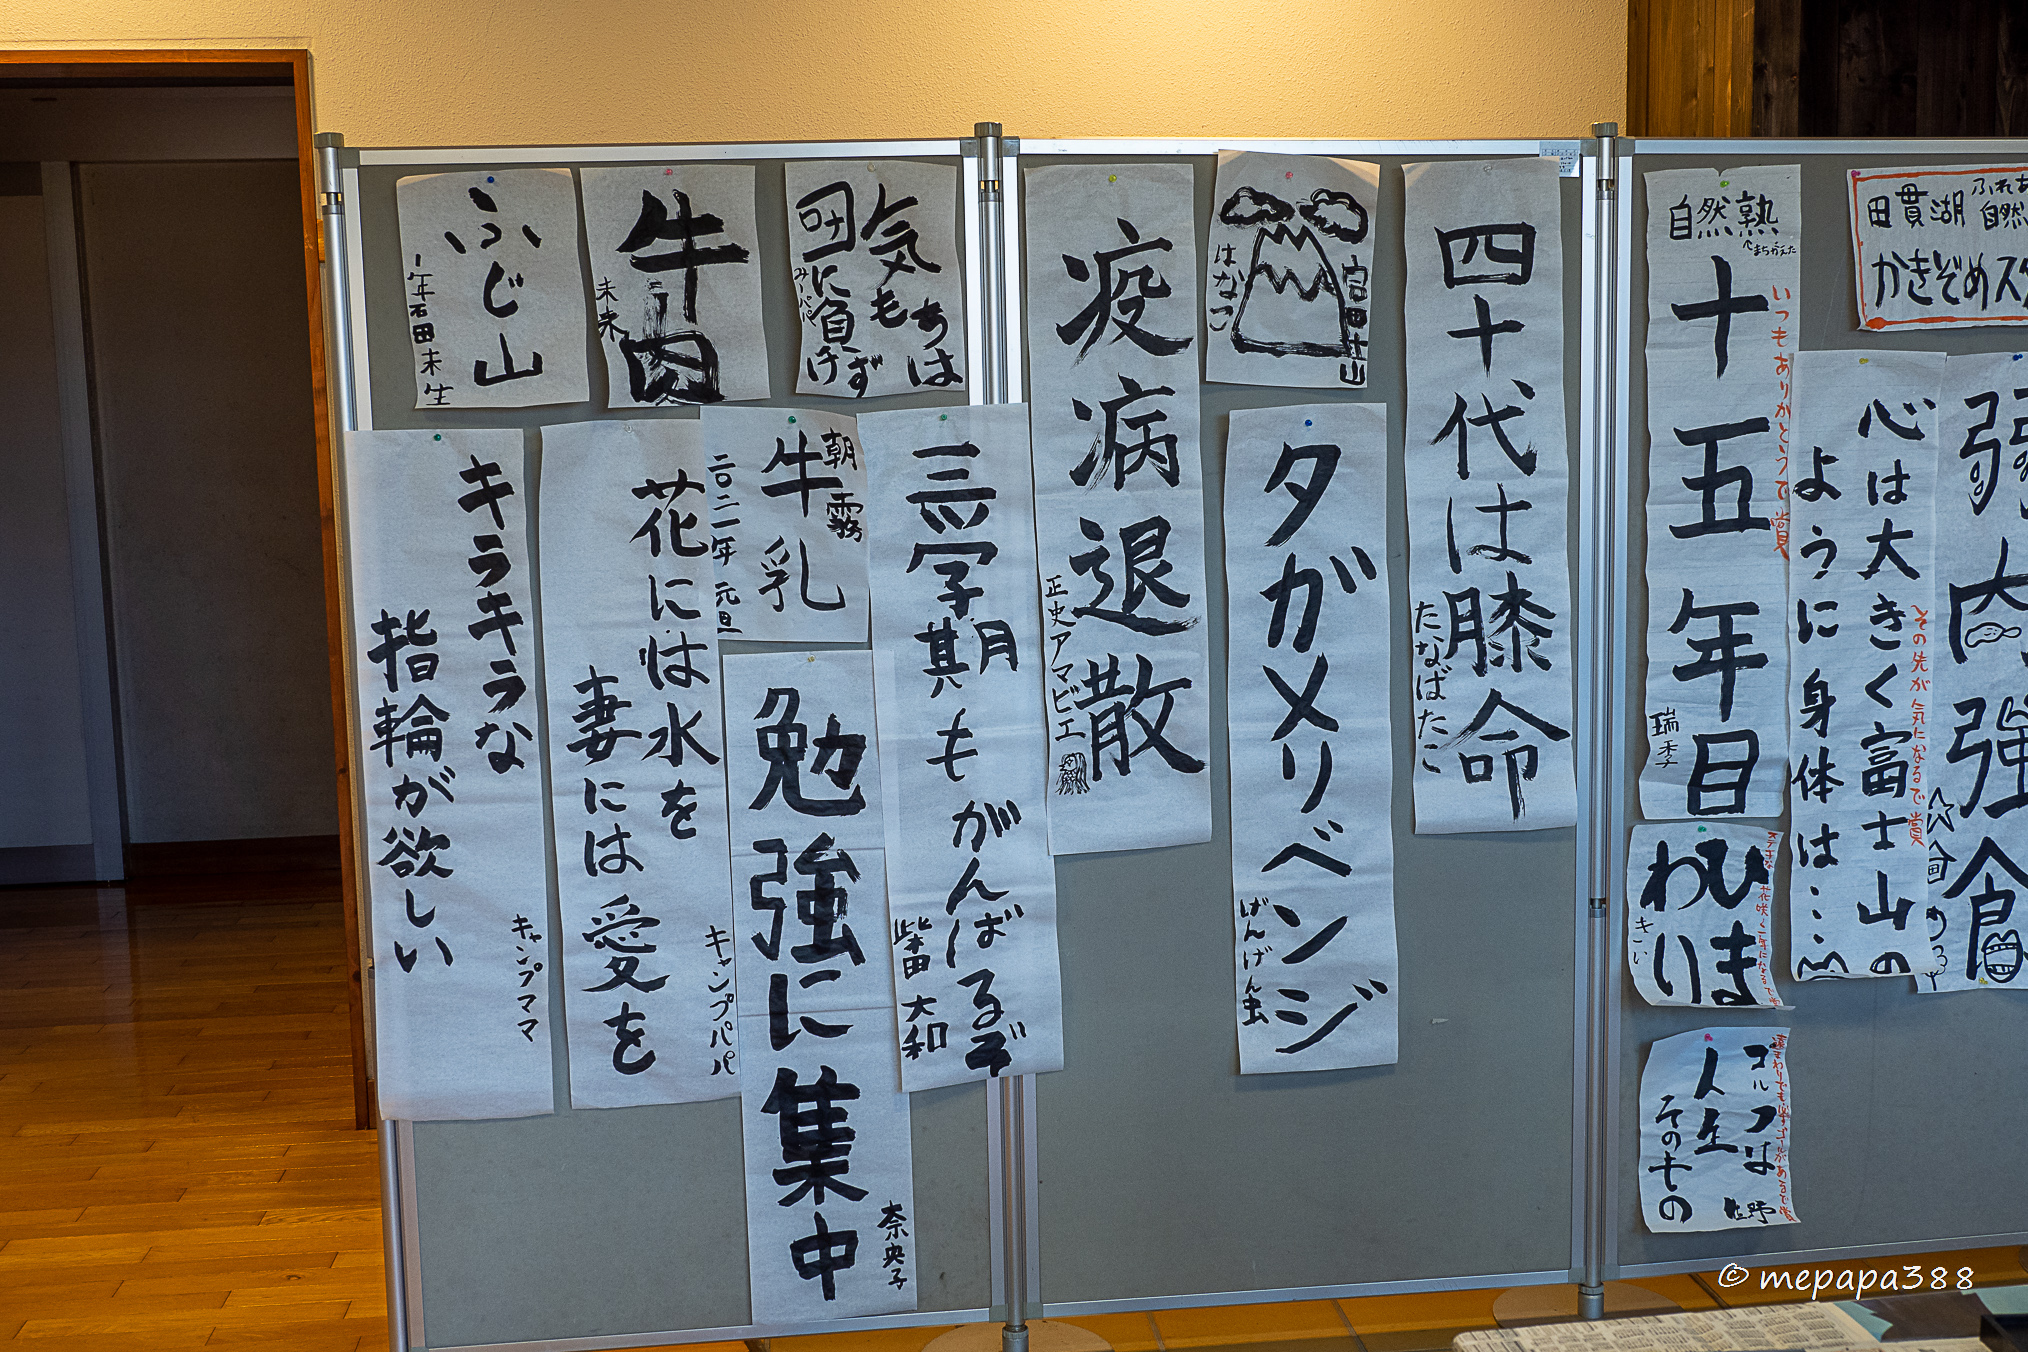 ふじ山
一年石田未生
牛肉
未来
気もちは
コロナに負けず
みーパパ
キラキラな
指輪が欲しい
キャンプママ
花には水を
妻には愛を
キャンプパパ
朝霧
牛乳
二〇二一年 元旦
勉強に集中
奈央子
三学期も
がんばるぞ
柴田 大和
疫病退散
正史アマビエ
はなこ
富士山
タガメリベンジ
げんげん虫
四十代は膝命
たなばたこ
自然熟
↑まちがえた
十五年目
瑞季
いつもありがとうで賞
田貫湖ふれあ
自然
かきぞめス
心は大きく富士山の
ように身体は……
その先が気になるで賞
強肉強食
ひまわり
きい
ステキな花咲く一年になるで賞
ゴルフは
人生
そのもの
佐野
遠まわりでも必ずゴールがあるで賞
© mepapa388